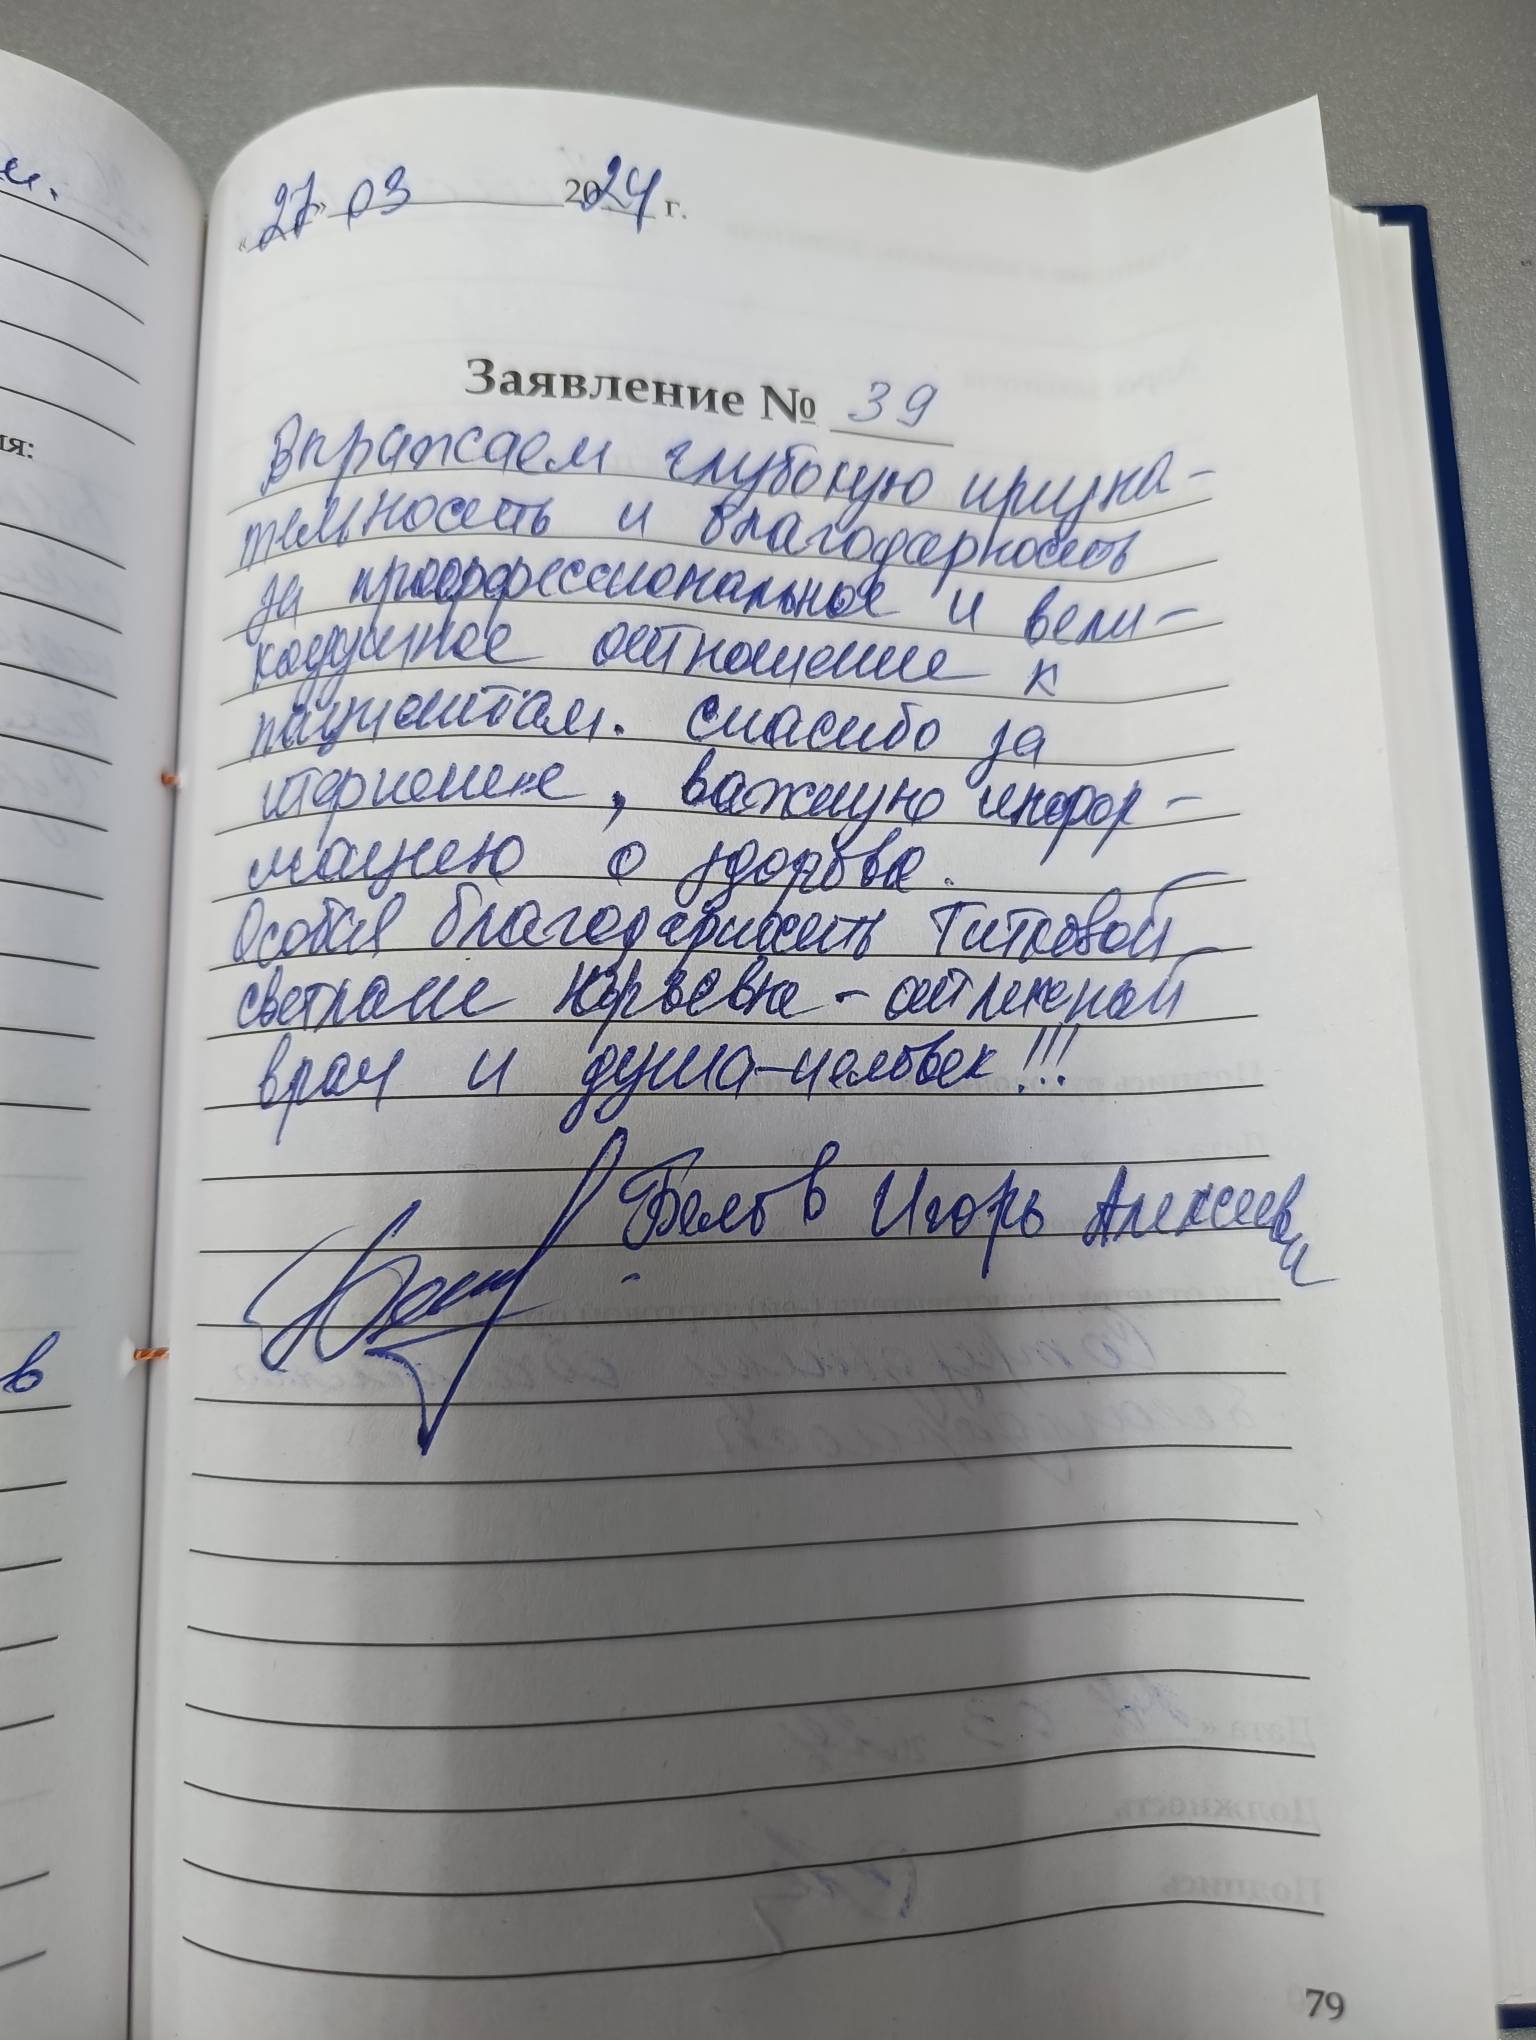 «27» 03 2024 г.
Заявление № 39
Выражаем глубокую призна-
тельность и благодарность
за профессиональное и вели-
кодушное отношение к
пациентам. Спасибо за
терпение, важную инфор-
мацию о здоровье.
Особая благодарность Титковой
Светлане Юрьевне - отличный
врач и душа-человек!!!
Белов Игорь Алексеевич
79
ия:
в